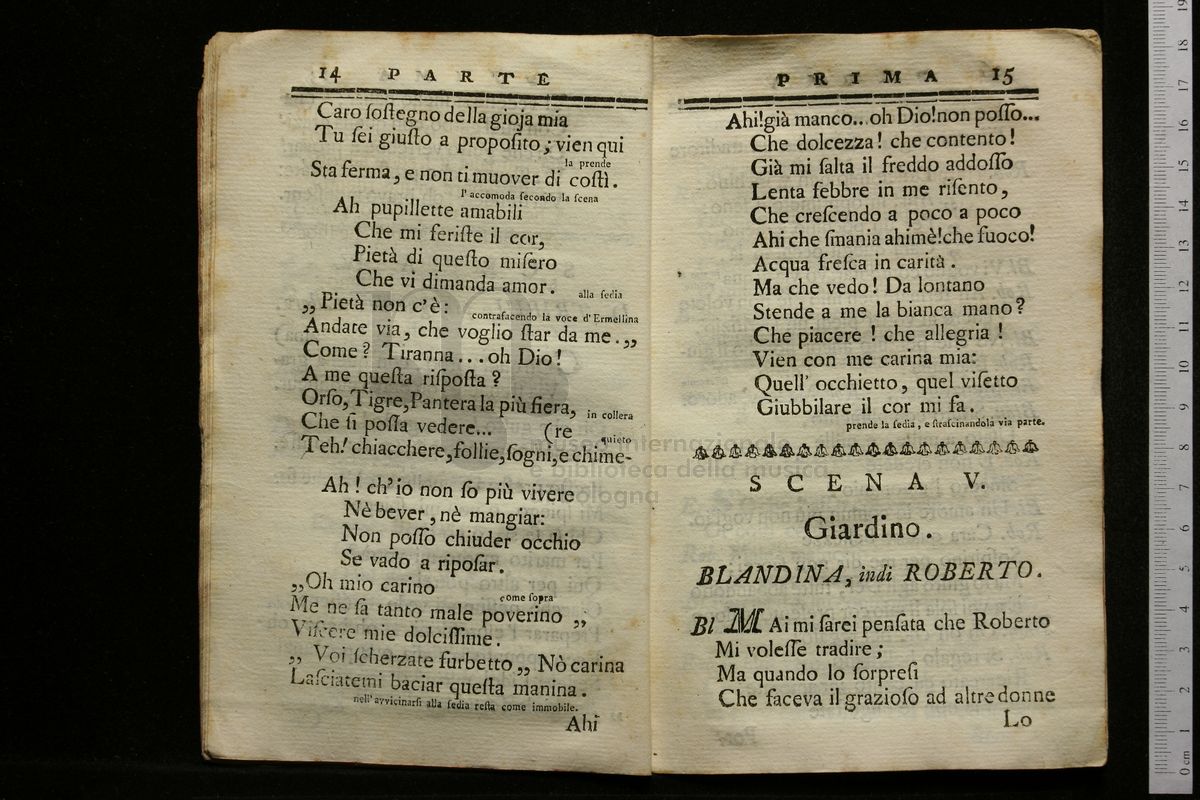 14 PARTE
Caro ſoſtegno della gioja mia
Tu ſei giuſto a propoſito; vien qui
la prende
Sta ferma, e non ti muover di coſtì.
l'accomoda ſecondo la ſcena
Ah pupillette amabili
Che mi feriſte il cor,
Pietà di queſto miſero
Che vi dimanda amor.
alla ſedia
„Pietà non c'è:
contrafacendo la voce d'Ermellina
Andate via, che voglio ſtar da me.„
Come? Tiranna...oh Dio!
A me queſta riſpoſta?
Orſo, Tigre, Pantera la più fiera,
in collera
Che ſi poſſa vedere... (re
quieto
Teh! chiacchere, follie, ſogni, e chime-
Ah! ch'io non ſo più vivere
Nè bever, nè mangiar:
Non poſſo chiuder occhio
Se vado a ripoſar.
„Oh mio carino
come ſopra
Me ne ſà tanto male poverino „
Viſcere mie dolciſſime.
„ Voi ſcherzate furbetto„ Nò carina
Laſciatemi baciar queſta manina.
nell'avvicinarſi alla ſedia reſta come immobile.
Ahi
PRIMA 15
Ahi!già manco...oh Dio!non poſſo...
Che dolcezza! che contento!
Già mi ſalta il freddo addoſſo
Lenta febbre in me riſento,
Che creſcendo a poco a poco
Ahi che ſmania ahimè!che fuoco!
Acqua freſca in carità.
Ma che vedo! Da lontano
Stende a me la bianca mano?
Che piacere! che allegria!
Vien con me carina mia:
Quell' occhietto, quel viſetto
Giubbilare il cor mi fa.
prende la ſedia, e ſtraſcinandola via parte.
SCENA V.
Giardino.
BLANDINA, indi ROBERTO.
Bl MAi mi ſarei penſata che Roberto
Mi voleſſe tradire;
Ma quando lo ſorpreſi
Che faceva il grazioſo ad altre donne
Lo
museo internazionale
e biblioteca della musica
bologna
0 cm 1 2 3 4 5 6 7 8 9 10 11 12 13 14 15 16 17 18 19